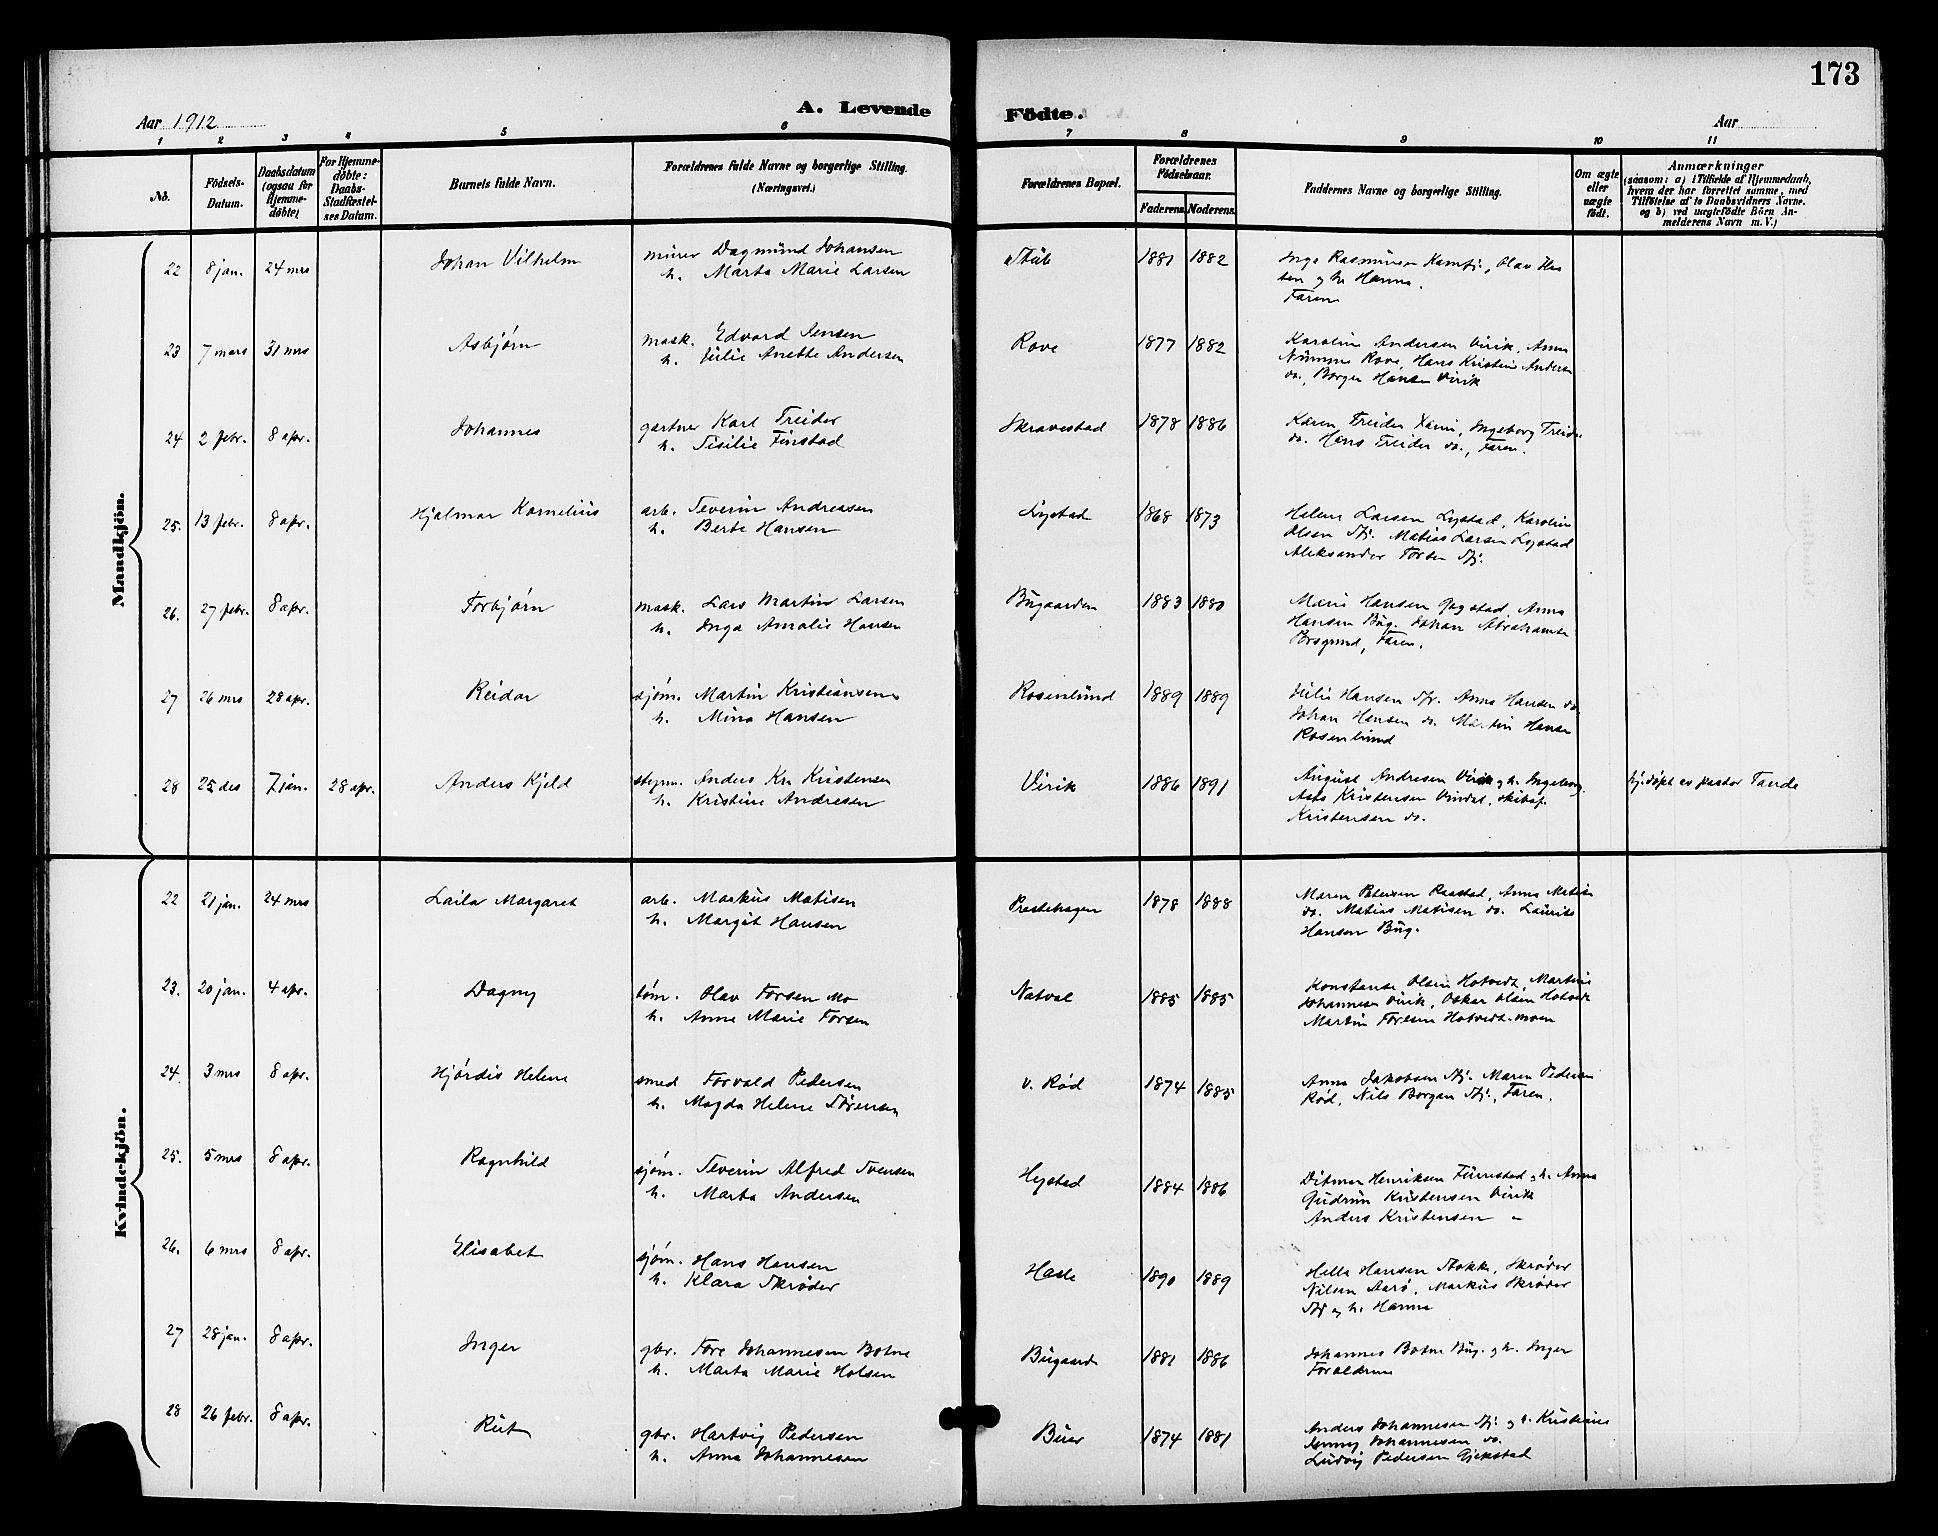 173
A. Levende Födte.
Aar 1912
Aar
1 2 3 4 5 6 7 8 9 10 11
No.
Födsels-Datum.
Daabsdatum (ogsaa for Hjemme-døbte)
For Hjemme-døbte: Daabs-Stadfæstel-ses Datum.
Barnets fulde Navn.
Forældrenes fulde Navne og borgerlige Stilling. (Næringsvei.)
Forældrenes Bopæl.
Forældrenes Födselsaar.
Faderens. Moderens.
Faddernes Navne og borgerlige Stilling.
Om ægte eller uægte født.
Anmærkninger
(saasom: a) i Tilfælde af Hjemmedaab,
hvem der har forrettet samme, med
Tilföielse af to Daabsvidners Navne.
og b) ved uægtefödte Börn An-
melderens Navn m. V.)
Mandkjön.
22 8 jan. 24 mrs Johan Vilhelm murer Dagmund Johansen Stub 1881 1882 Inga Rasmussen Kamfj., Olav
h. Marta Marie Larsen og h. Hanna.
Faren
23 7 mars 31 mrs Asbjørn mask. Edvard Jensen Rove 1877 1882 Karoline Andersen Virik, Anna
h. Julie Anette Andersen Numme Rove, Hans Kristian Anders
do., Borger Hansen Virik
24 2 febr. 8 apr. Johannes gartner Karl Treider Skravestad 1878 1886 Karen Treider, Ingeborg Treider
h. Sisilie Finstad do. Hans Treider do., Faren.
25. 13 febr. 8 apr. Hjalmar Kornelius arb. Severin Andreassen Lystad 1868 1873 Helene Larsen Lystad, Karoline
h. Berte Hansen Olsen Sfj. Matias Larsen Lystad
Aleksander Torsen Sfj.
26. 27 febr. 8 apr. Torbjørn mask. Lars Martin Larsen Bugaarden 1883 1880 Marie Hansen Gogstad, Anna
h. Inga Amalie Hansen Hansen Bug. Johan Abrahamsen
Porsgrund, Faren.
27 26 mrs 28 apr. Reidar sjøm. Martin Kristiansen Rosenlund 1889 1889 Julie Hansen Sfr. Anna Hansen do.
h. Mina Hansen Johan Hansen do. Martin Hansen
Rosenlund
28 25 des 7 jan. 28 apr. Anders Kjeld styrm. Anders Kr. Kristensen Virik 1886 1891 August Andresen Virik og h. Ingeborg. hj.døpt av pastor Tande
h. Kristine Andresen Asta Kristensen Vindal, skibsf.
Kristensen do.
Kvindekjön.
22 21 jan. 24 mrs Laila Margaret arb. Markus Matisen Prestehagen 1878 1888 Maren Petersen Raastad, Anna Matisen
h. Margit Hansen do. Matias Matisen do. Laurits
Hansen Bug.
23. 20 jan. 4 apr. Dagny tøm. Olav Torsen Mo Natvel 1885 1885 Konstanse Olsen Hotvedt, Martine
h. Anna Marie Torsen Johannesen Virik, Oskar Olsen Hotvedt
Martin Torsen Hotvedt-moen
24. 3 mrs 8 apr. Hjørdis Helene smed Torvald Pedersen v. Rød 1874 1885 Anna Jakobsen Sfj. Maren Pedersen
h. Magda Helene Sørensen Rød, Nils Borgan Sfj., Faren.
25. 5 mrs 8 apr. Ragnhild sjøm. Severin Alfred Svensen Hystad 1884 1886 Ditmar Henriksen Furustad og h. Anna
h. Marta Andersen Gudrun Kristensen Virik
Anders Kristensen "
26. 6 mrs 8 apr. Elisabet sjøm. Hans Hansen Hasle 1890 1889 Helle Hansen Stokke, Skrøder
h. Klara Skrøder Nilsen Aarø, Markus Skrøder
Sfj og h. Hanna
27 28 jan. 8 apr. Inger gbr. Tore Johannesen Botne Bugaard 1881 1886 Johannes Botne Bug. og h. Inger
h. Marta Marie Holsen Foreldrene
28 26 febr. 8 apr. Rut gbr. Hartvig Pedersen Buer 1874 1881 Anders Johannesen Sfj. og h. Kristiane
h. Anna Johannesen Jenny Johannesen do.
Ludvig Pedersen Gjekstad